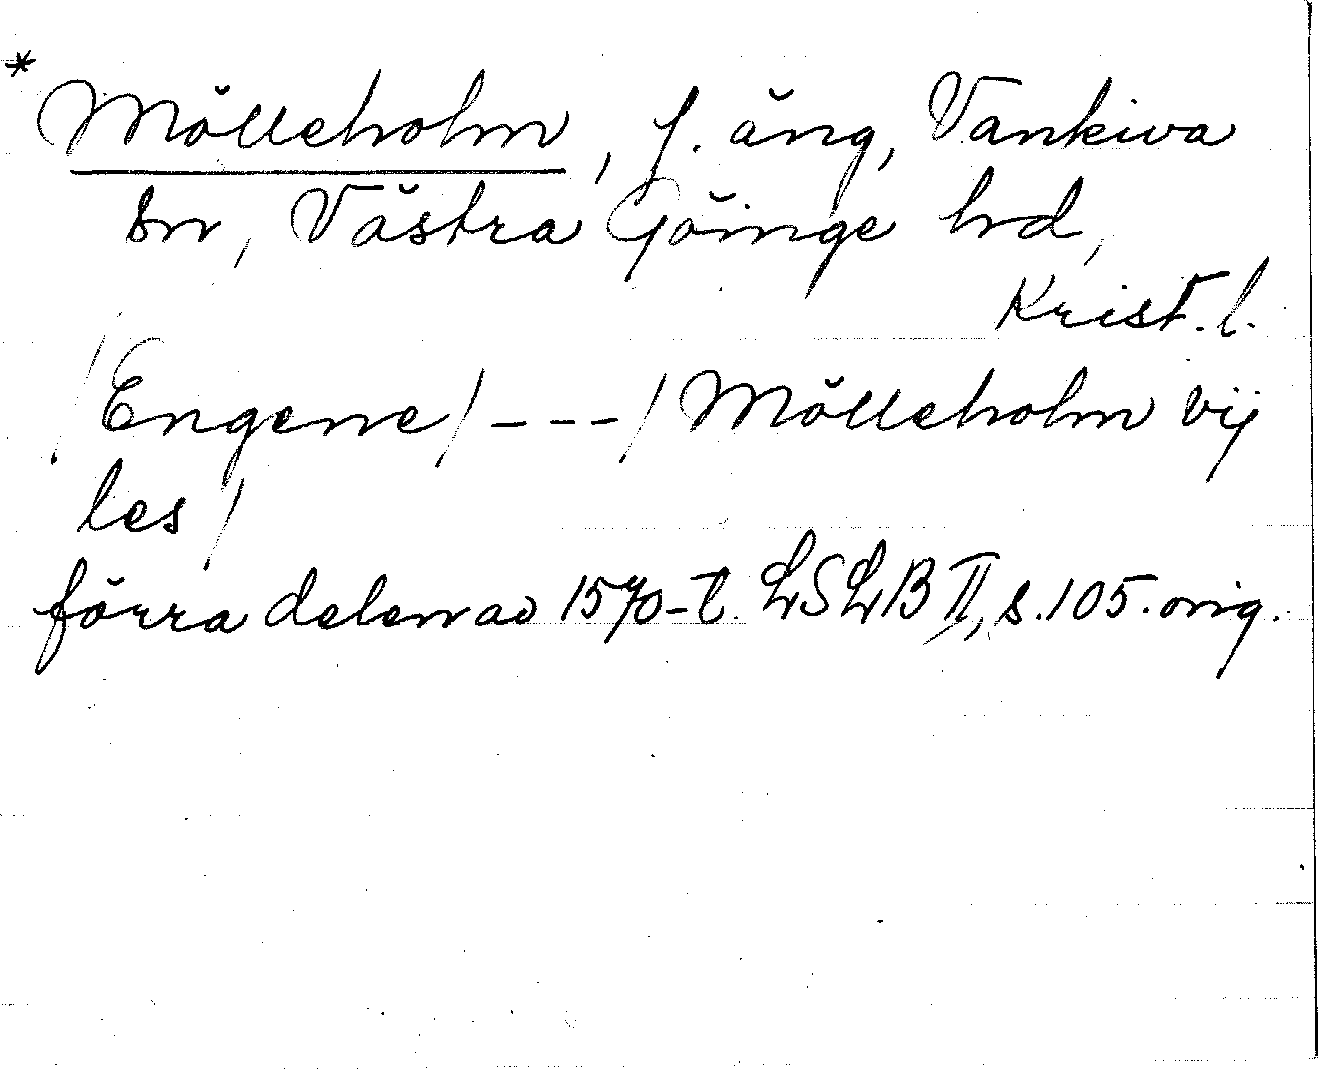 * Mölleholm, f. äng, Vankiva
sn, Västra Göinge hd,
Krist. l.
/Engene/ - - - / Mölleholm vij
les /
förra delen av 1570-t. LSLB II, s. 105. orig.